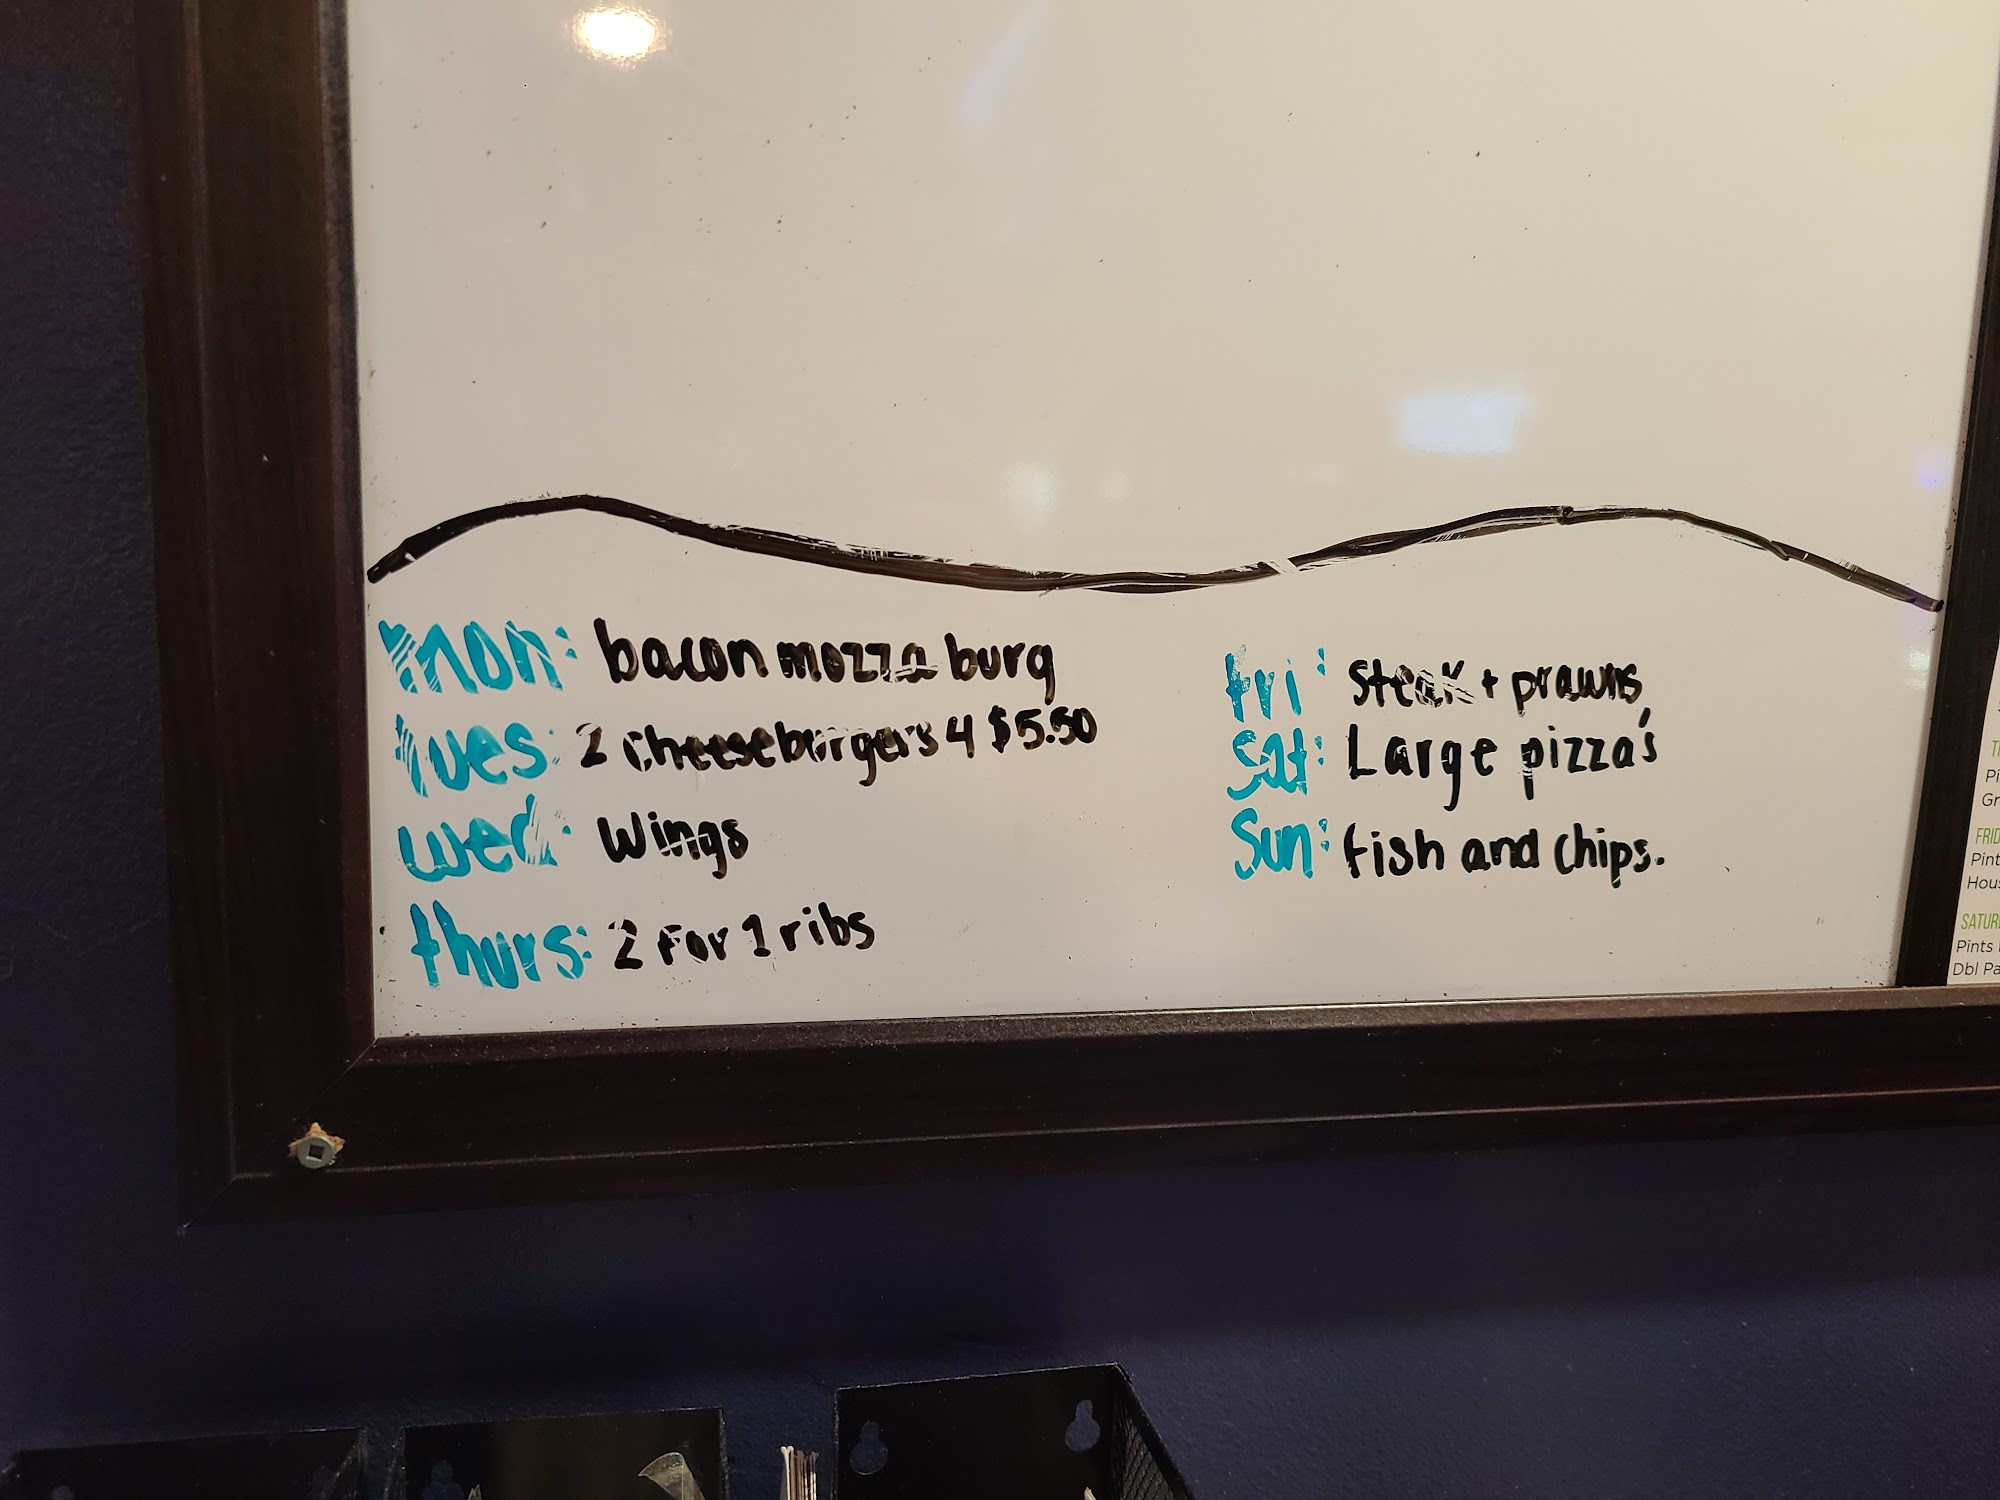 mon: bacon mozza burg
tues: 2 cheeseburgers 4 $5.50
wed: Wings
thurs: 2 For 1 ribs
fri: steak + prawns
sat: Large pizza's
Sun: fish and chips.
Pint
SATUR
Pints
Dbl Pa